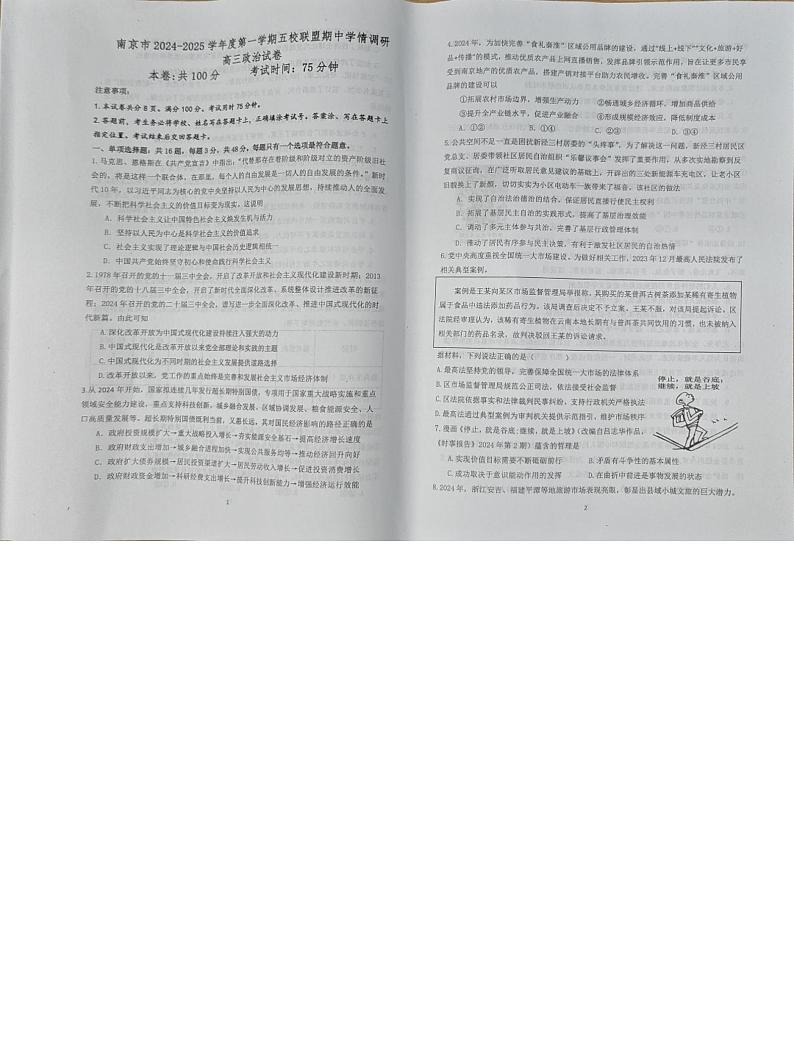 南京市 2024-2025 学年度第一学期五校联盟期中学情调研
高三政治试卷
本卷:共 100 分 考试时间：75 分钟
注意事项：
1. 本试卷共分 8 页。满分 100 分。考试用时 75 分钟。
2. 答题前，考生务必将学校、姓名写在答题卡上，正确填涂考试号。答案涂、写在答题卡上
指定位置。考试结束后交回答题卡。
一、单项选择题：共 16 题，每题 3 分，共 48 分，每题只有一个选项最符合题意。
1. 马克思、恩格斯在《共产党宣言》中指出：“代替那存在着阶级和阶级对立的资产阶级旧社
会的，将是这样一个联合体，在那里，每个人的自由发展是一切人的自由发展的条件。”新时
代 10 年，以习近平同志为核心的党中央坚持以人民为中心的发展思想，持续推动人的全面发
展，不断把科学社会主义的价值目标变为现实，这说明
A. 科学社会主义让中国特色社会主义焕发生机与活力
B. 坚持以人民为中心是科学社会主义的价值追求
C. 社会主义实现了理论逻辑与中国社会历史逻辑相统一
D. 中国共产党始终坚守初心和使命践行科学社会主义
2. 1978 年召开的党的十一届三中全会，开启了改革开放和社会主义现代化建设新时期；2013
年召开的党的十八届三中全会，开启了新时代全面深化改革、系统整体设计推进改革的新征
程；2024 年召开的党的二十届三中全会，谱写进一步全面深化改革、推进中国式现代化的时
代新篇。由此可知
A. 深化改革开放为中国式现代化建设持续注入强大的动力
B. 中国式现代化是改革开放以来党全部理论和实践的主题
C. 中国式现代化为不同时期的社会主义发展提供道路选择
D. 改革开放以来，党工作的重点始终是完善和发展社会主义市场经济体制
3. 从 2024 年开始，国家拟连续几年发行超长期特别国债，专项用于国家重大战略实施和重点
领域安全能力建设，重点支持科技创新、城乡融合发展、区域协调发展、粮食能源安全、人
口高质量发展等。超长期特别国债既利当前，又惠长远。其对国民经济影响的路径正确的是
A. 政府投资规模扩大→重大战略投入增长→夯实能源安全基石→提高经济增长速度
B. 政府财政支出增加→城乡融合进程加快→实现公共服务均等→推动经济回升向好
C. 政府扩大债券规模→居民投资渠道扩大→居民劳动收入增长→促进投资消费增长
D. 政府财政资金增加→科研经费支出增长→提升科技创新能力→增强经济运行效能
1
4. 2024 年，为加快完善“食礼秦淮”区域公用品牌的建设，通过“线上+线下”“文化+旅游+好
品+传播”的模式，推动优质农产品上网直播销售，发挥品牌引领示范作用，旨在让更多市民享
受到南京地产的优质农产品，搭建产销对接平台助力农民增收。完善“食礼秦淮”区域公用
品牌的建设可以
①拓展农村市场边界，增强生产动力 ②畅通城乡经济循环，增加商品供给
③提升全产业链水平，促进产业融合 ④形成规模经济效应，降低制度成本
A. ①② B. ①③ C. ②③ D. ③④
5. 公共空间不足一直是困扰新泾三村居委的“头疼事”。为了解决这一问题，新泾三村居民区
党总支、居委带领社区居民自治组织“乐馨议事会”发挥了重要作用，从多次实地勘察到反
复商议征询，在广泛听取居民意见建议的基础上，开辟出的三处新能源车充电区，让老小区
旧貌换上了新颜，切切实实为小区电动车一族带来了福音。该社区的做法
A. 实现了自治法治德治的结合，保证居民直接行使民主权利
B. 拓展了基层民主自治的实践形式，提高了基层治理效能
C. 调动了多元主体参与共治，完善了基层行政管理体制
D. 推动了居民有序参与民主决策，有利于激发社区居民的自治热情
6. 党中央高度重视全国统一大市场建设。为做好相关工作，2023 年 12 月最高人民法院发布了
相关典型案例。
案例是王某向某区市场监督管理局举报称，其购买的某普洱古树茶添加某稀有寄生植物
属于食品中违法添加药品行为。该局调查后决定不予立案。王某不服，对该局提起诉讼。区
法院经审理认为，该稀有寄生植物在云南本地长期有与普洱茶共同饮用的习惯，也未被纳入
相关部门的药品名录，故判决驳回王某的诉讼请求。
据材料，下列说法正确的是（ ）
A. 最高法坚持党的领导，完善保障全国统一大市场的法律体系
B. 区市场监督管理局规范公正司法，依法接受社会监督
C. 区法院依据事实和法律裁判民事纠纷，支持行政机关严格执法
D. 最高法通过典型案例为审判机关提供示范指引，维护市场秩序
停止，就是谷底；
继续，就是上坡
7. 漫画《停止，就是谷底；继续，就是上坡》（改编自吕志华作品，
《时事报告》2024 年第 2 期）蕴含的哲理是
A. 实现价值目标需要不断砥砺前行 B. 矛盾有斗争性的基本属性
C. 成功取决于意识能动作用的发挥 D. 在曲折中前进是事物发展的状态
8. 2024 年，浙江安吉、福建平潭等地旅游市场表现亮眼，彰显出县域小城文旅的巨大潜力。
2